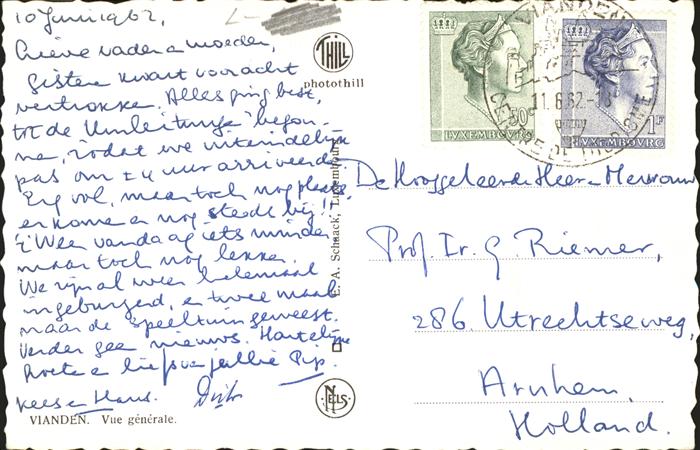 10 Juni 1962,
Lieve vader en moeder,
Gisteren kwart voor acht
vertrokken. Alles ging best,
tot de Umleitungen begon-
nen, zodat we uiteindelijk
pas om ± 4 uur arriveerden
Erg vol, maar toch nog plaats
en komen er nog steeds bij!!
't Weer vandaag iets minder
maar toch nog lekker.
We zijn al weer helemaal
ingeburgerd, en twee maal
naar de speeltuin geweest.
Verder geen nieuws. Hartelijke
groeten en liefs van jullie Pip.
Kees en Hans.
VIANDEN. Vue générale.
THILL
photothill
E. A. Schaack, Luxembourg
NELS
VIANDEN
11.6.62
50c
LVXEMBOVRG
1F
LVXEMBOVRG
De Hooggeleerde Heer en Mevrouw
Prof. Ir. G. Riemer,
286 Utrechtseweg,
Arnhem.
Holland.